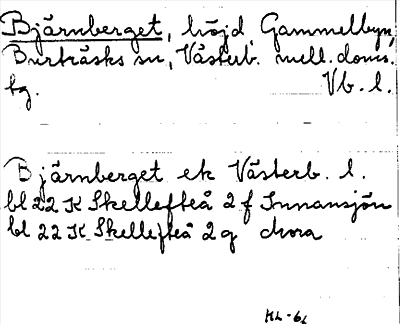 Bjärnberget, höjd, Gammelbyn,
Burträsks sn, Västerb. mell. doms.
tg. Vb. l.
Bjärnberget ek Västerb. l.
bl 22 K Skellefteå 2 f Innansjön
bl 22 K Skellefteå 2 g
HL-62